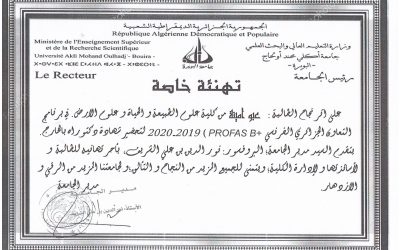 الجمهورية الجزائرية الديمقراطية الشعبية
République Algérienne Démocratique et Populaire
Ministère de l'Enseignement Supérieur
et de la Recherche Scientifique
Université Akli Mohand Oulhadj - Bouira -
وزارة التعليم العالي والبحث العلمي
جامعة أكلي محند أولحاج
- البويرة -
Le Recteur
رئيس الجامعة
تهنئة خاصة
على إثر نجاح الطالبة : من كلية علوم الطبيعة و الحياة و علوم الأرض في برنامج
التعاون الجزائري الفرنسي PROFAS B+ ) 2020_2019 لتحضير شهادة دكتوراه بالخارج
يتقدم السيد مدير الجامعة، البروفسور: نور الدين بن علي الشريف، بأحر تهانيه للطالبة و
لأساتذتها و لإدارة الكلية، ويتمنى للجميع المزيد من النجاح و التألق و لجامعتنا المزيد من الرقي و
الازدهار
مدير الجامعة
مدير الجامعة